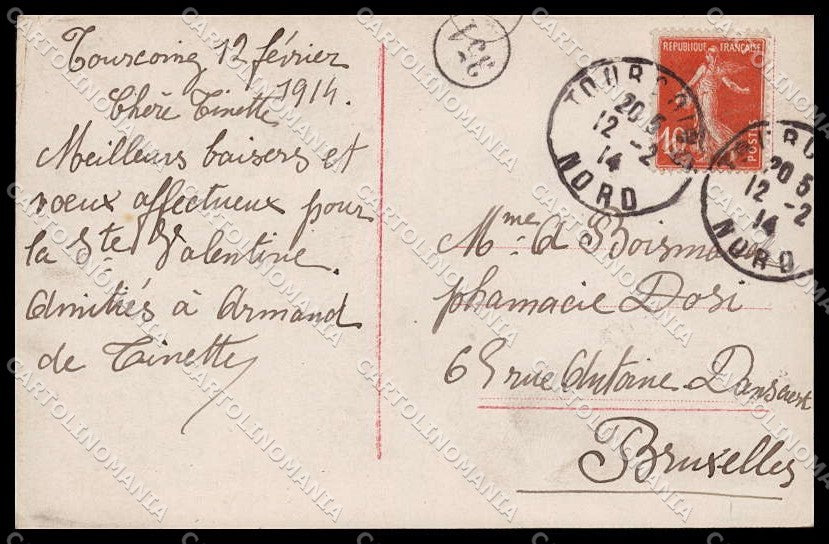 Tourcoing 12 février
1914.
Chère Tinette
Meilleurs baisers et
vœux affectueux pour
la Ste Valentine.
Amitiés à Armand
de Tinette
331
REPUBLIQUE FRANÇAISE
10
POSTES
TOURCOING
20 5
12 -2
14
NORD
20 5
12 -2
14
NORD
Mme A
phamacie Dosi
65 rue Antoine Dansaert
Bruxelles
CARTOLINOMANIA